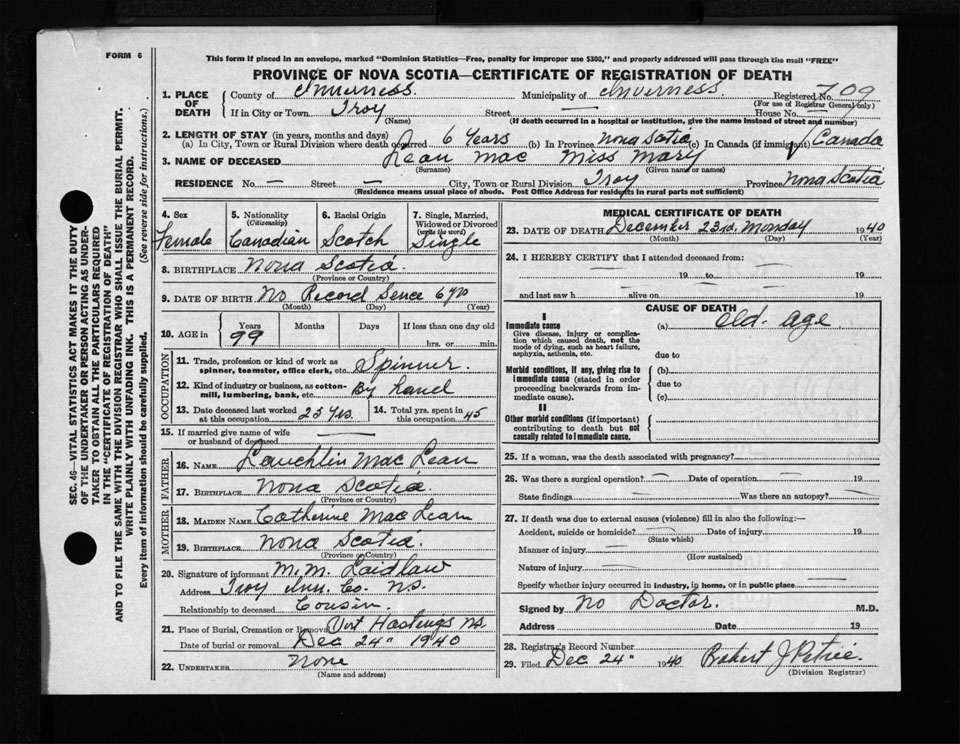 FORM 6
This form if placed in an envelope, marked "Dominion Statistics—Free, penalty for improper use $300," and properly addressed will pass through the mail "FREE"
PROVINCE OF NOVA SCOTIA—CERTIFICATE OF REGISTRATION OF DEATH
1. PLACE OF DEATH County of Inverness. Municipality of Inverness. Registered No. 709
(For use of Registrar General only)
If in City or Town Troy Street — House No. —
(Name) (If death occurred in a hospital or institution, give the name instead of street and number)
2. LENGTH OF STAY (in years, months and days)
(a) In City, Town or Rural Division where death occurred 6 Years (b) In Province Nova Scotia (c) In Canada (if immigrant) Canada
3. NAME OF DECEASED Lean Mac Miss Mary
(Surname) (Given name or names)
RESIDENCE No. — Street — City, Town or Rural Division Troy Province Nova Scotia
(Residence means usual place of abode. Post Office Address for residents in rural parts not sufficient)
4. Sex Female
5. Nationality (Citizenship) Canadian
6. Racial Origin Scotch
7. Single, Married, Widowed or Divorced (write the word) Single
8. BIRTHPLACE Nova Scotia.
(Province or Country)
9. DATE OF BIRTH No Record Sence 6 yrs
(Month) (Day) (Year)
10. AGE in Years 99 Months Days If less than one day
hrs. or min.
OCCUPATION
11. Trade, profession or kind of work as spinner, teamster, office clerk, etc. Spinner.
12. Kind of industry or business, as cotton-mill, lumbering, bank, etc. By hand
13. Date deceased last worked at this occupation 25 yrs. 14. Total yrs. spent in this occupation 45
15. If married give name of wife or husband of deceased —
FATHER
16. NAME Lauchlin Mac Lean
17. BIRTHPLACE Nova Scotia.
(Province or Country)
MOTHER
18. MAIDEN NAME Catherine Mac Lean
19. BIRTHPLACE Nova Scotia.
(Province or Country)
20. Signature of informant M. M. Laidlaw
Address Troy Inv. Co. N.S.
Relationship to deceased Cousin.
21. Place of Burial, Cremation or Removal Port Hastings N.S.
Date of burial or removal Dec 24" 1940
22. UNDERTAKER None
(Name and address)
MEDICAL CERTIFICATE OF DEATH
23. DATE OF DEATH December 23rd. Monday 1940
(Month) (Day) (Year)
24. I HEREBY CERTIFY that I attended deceased from:
— 19 to — 19
and last saw h — alive on — 19
CAUSE OF DEATH
I
Immediate cause (a) Old. age
Give disease, injury or complication which caused death, not the mode of dying, such as heart failure, asphyxia, asthenia, etc.
due to
Morbid conditions, if any, giving rise to immediate cause (stated in order proceeding backwards from immediate cause).
(b)
due to
(c)
II
Other morbid conditions (if important) contributing to death but not causally related to immediate cause.
25. If a woman, was the death associated with pregnancy?
26. Was there a surgical operation? — Date of operation — 19
State findings — Was there an autopsy? —
27. If death was due to external causes (violence) fill in also the following:—
Accident, suicide or homicide? — Date of injury — 19
(State which)
Manner of injury —
(How sustained)
Nature of injury —
Specify whether injury occurred in industry, in home, or in public place —
Signed by No Doctor. M.D.
Address Date 19
28. Registrar's Record Number
29. Filed Dec 24" 1940 Robert J Petrie.
(Division Registrar)
SEC. 46—VITAL STATISTICS ACT MAKES IT THE DUTY OF THE UNDERTAKER OR PERSON ACTING AS UNDERTAKER TO OBTAIN ALL THE PARTICULARS REQUIRED IN THE "CERTIFICATE OF REGISTRATION OF DEATH"
AND TO FILE THE SAME WITH THE DIVISION REGISTRAR WHO SHALL ISSUE THE BURIAL PERMIT.
WRITE PLAINLY WITH UNFADING INK. THIS IS A PERMANENT RECORD.
Every item of information should be carefully supplied. (See reverse side for instructions.)